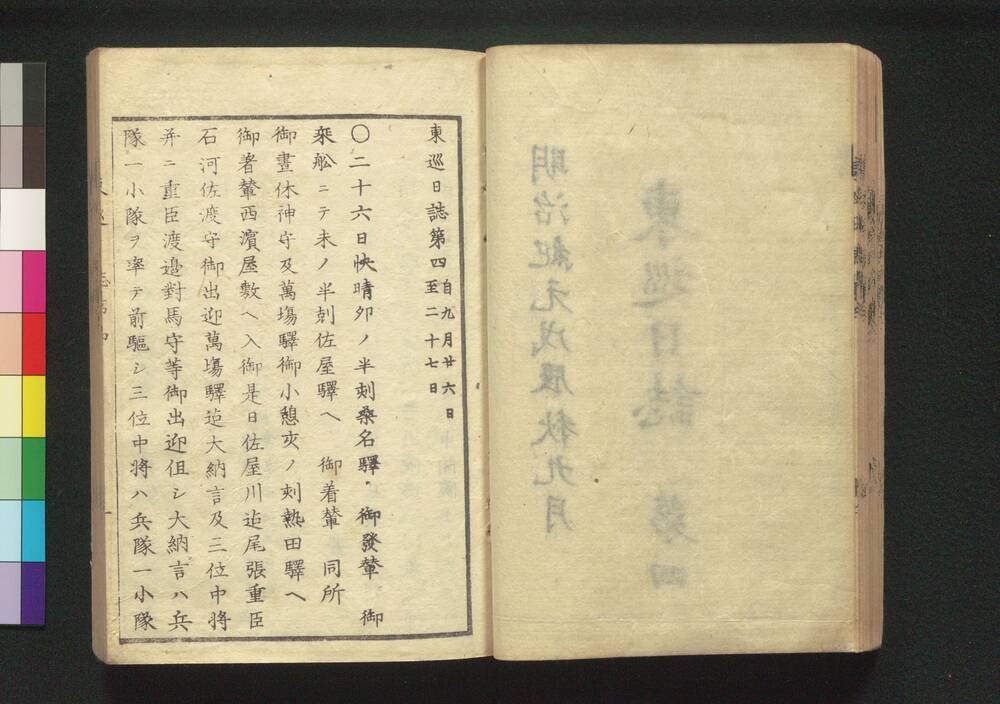 明治紀元戊辰秋九月
東巡日誌 第四
東巡日誌第四 自九月廿六日
至二十七日
〇二十六日快晴卯ノ半刻桑名驛 御發輦 御
乘舩ニテ未ノ半刻佐屋驛ヘ 御着輦 同所
御晝休神守及萬塲驛御小憩亥ノ刻熱田驛ヘ
御着輦西濱屋敷ヘ入御是日佐屋川迠尾張重臣
石河佐渡守御出迎萬塲驛迠大納言及三位中將
并ニ重臣渡邉對馬守等御出迎但シ大納言ハ兵
隊一小隊ヲ率テ前驅シ三位中將ハ兵隊一小隊